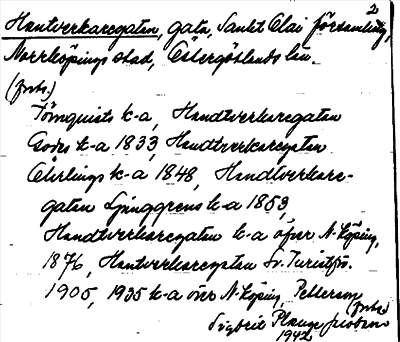 2
Hantverkaregatan, gata, Sankt Olai församling,
Norrköpings stad, Östergötlands län.
(forts.)
Törnquists k-a, Handtverkaregatan
Godes k-a 1833, Handtverkaregatan
Öhrlings k-a 1848, Handtverkare-
gatan Ljunggrens k-a 1853,
Handtverkaregatan k-a öfver N-köping,
1876, Hantverkaregatan Sv. Turistför.
1905, 1935 k-a över N-köping, Petterson
(forts.)
1942